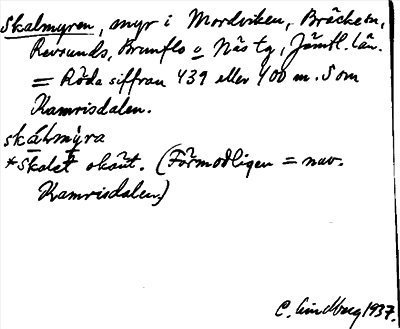 Skalmyren, myr i Mordviken, Bräcke sn,
Revsunds, Brunflo o Näs tg, Jämtl. län.
= Röda siffran 439 eller 400 m. S om
Kamrisdalen.
skálmỳra
*Skalet okänt. (Förmodligen = nuv.
Kamrisdalen.)
C. Lindberg 1937.